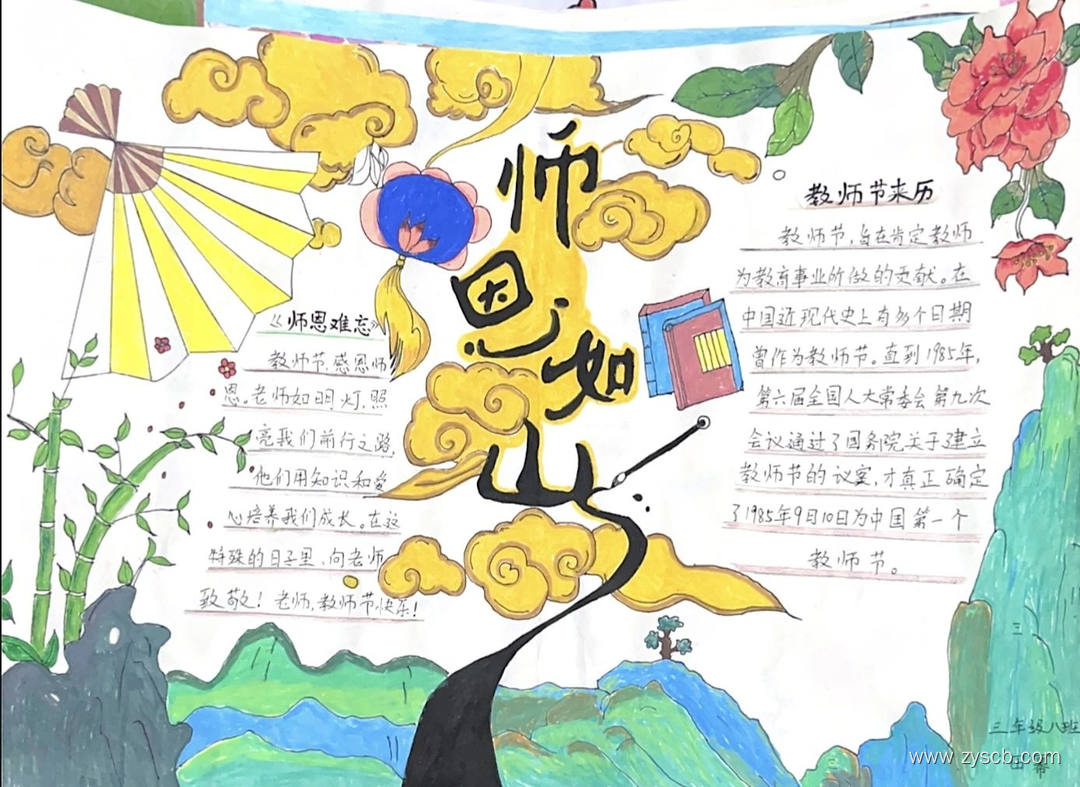 师恩如山
《师恩难忘》
教师节,感恩师
恩。老师如明灯,照
亮我们前行之路,
他们用知识和爱
心培养我们成长。在这
特殊的日子里,向老师
致敬!老师,教师节快乐!
教师节来历
教师节,旨在肯定教师
为教育事业所做的贡献。在
中国近现代史上有多个日期
曾作为教师节。直到1985年,
第六届全国人大常委会第九次
会议通过了国务院关于建立
教师节的议案,才真正确定
了1985年9月10日为中国第一个
教师节。
三年级八班
www.zyscb.com